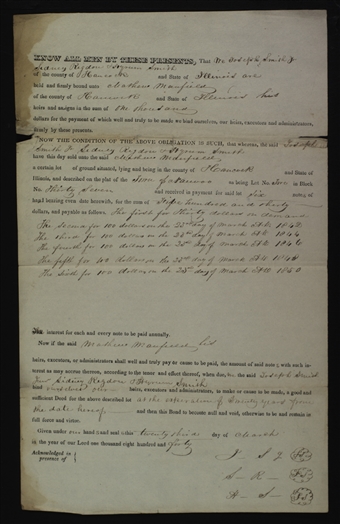 KNOW ALL MEN BY THESE PRESENTS, That We Joseph Smith Jr
Sidney Rigdon & Hyrum Smith
of the county of Hancock and State of Illinois are
held and firmly bound unto Mathew Mansfield
of the county of Hancock and State of Illinois his
heirs and assigns in the sum of One thousand
dollars for the payment of which well and truly to be made we bind ourselves, our heirs, executors and administrators,
firmly by these presents.
NOW THE CONDITION OF THE ABOVE OBLIGATION IS SUCH, that whereas, the said Joseph
Smith Jr Sidney Rigdon & Hyrum Smith
have this day sold unto the said Mathew Mansfield
a certain lot of ground situated, lying and being in the county of Hancock and State of
Illinois, and described on the plat of the Town of Nauvoo as being Lot No. in Block
No. Thirty Seven and received in payment for said lot Six notes, of
hand bearing even date herewith, for the sum of Five hundred and thirty
dollars, and payable as follows. The first for thirty dollars on demand
The Second for 100 dollars on the 23d day of March 1842
The third for 100 dollars on the 23d day of March 1844
The fourth for 100 dollars on the 23d day of March 1846
The fifth for 100 dollars on the 23d day of March 1848
The Sixth for 100 dollars on the 23d day of March 1850
The interest for each and every note to be paid annually.
Now if the said Mathew Mansfield his
heirs, executors or administrators shall well and truly pay or cause to be paid, the amount of said notes with such interest as may accrue thereon, according to the tenor and effect thereof, when due, the said Joseph Smith
Jr Sidney Rigdon & Hyrum Smith
bind our heirs, executors and administrators, to make or cause to be made, a good and
sufficient Deed for the above described lot at the expiration of twenty years from
the date hereof and then this Bond to become null and void, otherwise to be and remain in
full force and virtue.
Given under our hand and seal this twenty third day of March
in the year of our Lord one thousand eight hundred and forty
Acknowledged in
presence of
J S J
S- R-
H- S-